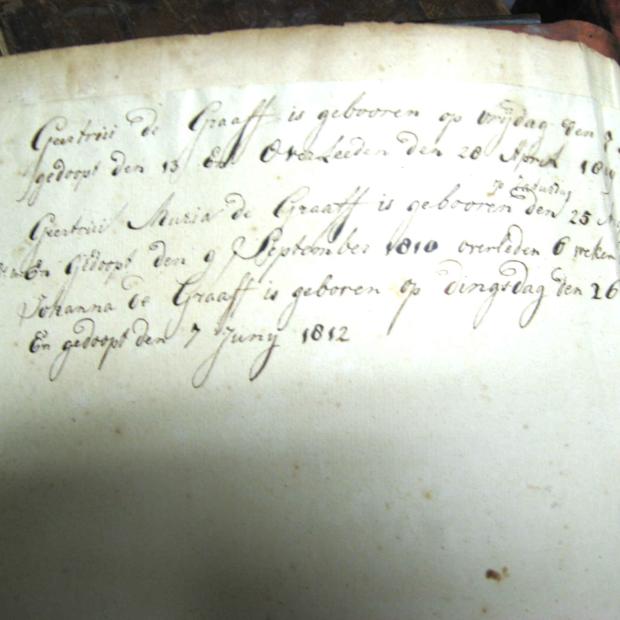 Geertrui de Graaff is gebooren op vrijdag den
gedoopt den 13 En Overleeden den 28 April
op Zaturdag
Geertrui Maria de Graaff is gebooren den 25
En Gedoopt den 9 September 1810 overleden 6 weken
Johanna de Graaff is geboren op dingsdag den 26
En gedoopt den 7 Junij 1812